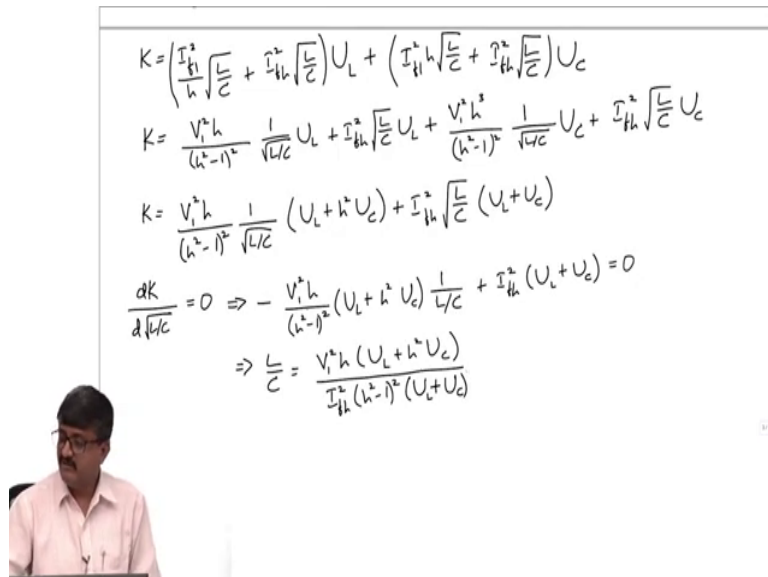 K = (I_{f1}^2/h √(L/C) + I_{fh}^2 √(L/C)) U_L + (I_{f1}^2 h √(L/C) + I_{fh}^2 √(L/C)) U_C
K = V_1^2 h/(h^2-1)^2 1/√(L/C) U_L + I_{fh}^2 √(L/C) U_L + V_1^2 h^3/(h^2-1)^2 1/√(L/C) U_C + I_{fh}^2 √(L/C) U_C
K = V_1^2 h/(h^2-1)^2 1/√(L/C) (U_L + h^2 U_C) + I_{fh}^2 √(L/C) (U_L + U_C)
dK/d√(L/C) = 0 ⇒ - V_1^2 h/(h^2-1)^2 (U_L + h^2 U_C) 1/(L/C) + I_{fh}^2 (U_L + U_C) = 0
⇒ L/C = V_1^2 h (U_L + h^2 U_C)/(I_{fh}^2 (h^2-1)^2 (U_L + U_C))